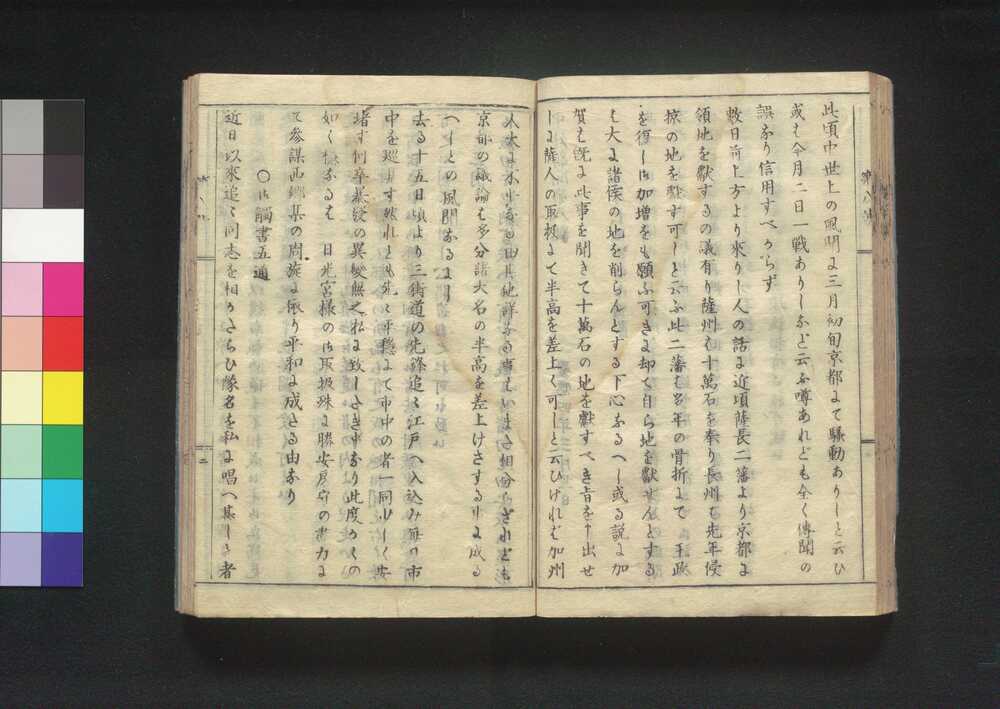 此頃中世上の風聞に三月初旬京都にて騒動ありしと云ひ
或は今月二日一戦ありしなど云ふ噂あれども全く傳聞の
誤なり信用すべからず
数日前上方より來りし人の話に近頃薩長二藩より京都に
領地を獻するの議有り薩州は十萬石を奉り長州は先年侵
掠の地を獻す可しと云ふ此二藩は多年の骨折にて王政
を復し御加増をも願ふ可きに却て自ら地を獻せんとする
は大に諸侯の地を削らんとする下心なるへし或る説に加
賀も既に此事を聞きて十萬石の地を獻すべき旨を申出せ
しに薩人の取扱にて半高を差上く可しと云ひければ加州
人大に なる由其他 事はいまた相分らざれども
京都の議論は多分諸大名の半高を差上けさする事に成る
へしとの風聞なるよし
去る十五日頃より三街道の先鋒追々江戸へ入込み毎日市
中を巡 す然れとも先は平穏にて市中の者一同 く安
堵す何卒 の異變無之様に致したき事なり此度かくの
如く なるは 日光宮様の御取扱殊に勝安房守の盡力に
て参謀西郷某の周旋に依り平和に成たる由なり
〇御觸書五通
近日以來追々同志を相かたらひ隊名を私に唱へ し者